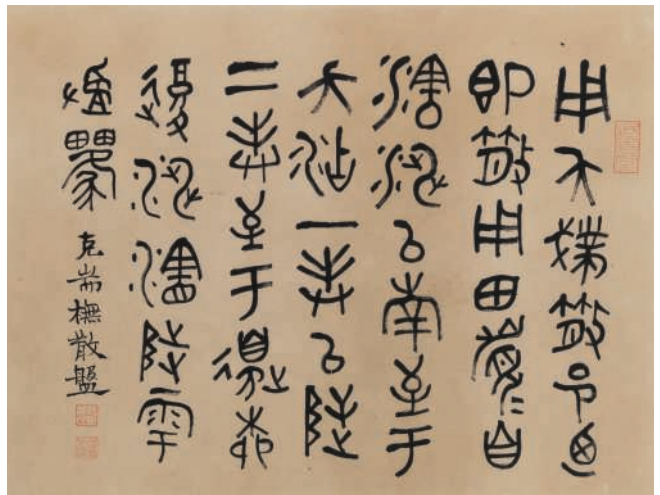 用夨撲散邑迺
即散用田眉自
瀗涉以南至于
大沽一封以陟
二封至于邊柳
復涉瀗陟雩
克耑橅散盤